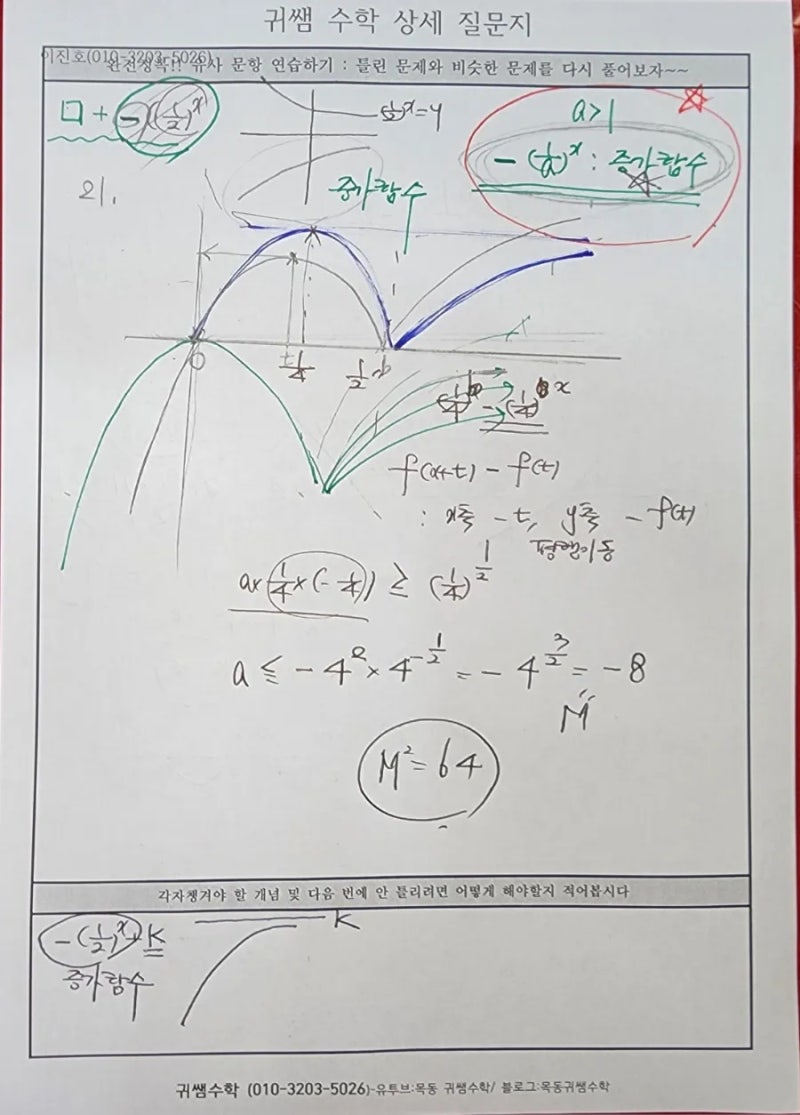 귀쌤 수학 상세 질문지
이진호(010-3203-5026)
완전정복!! 유사 문항 연습하기 : 틀린 문제와 비슷한 문제를 다시 풀어보자~~
□ + (-)(1/2)^x
(1/2)^x = y
a>1
-(1/a)^x : 증가함수
증가함수
21.
0
1/4
1/2
f(x+t) - f(t)
: x축 -t, y축 -f(t)
평행이동
a×1/4×(-1/4) ≥ (1/4)^(1/2)
a ≤ -4^2 × 4^(-1/2) = -4^(3/2) = -8
M
M² = 64
각자챙겨야 할 개념 및 다음 번에 안 틀리려면 어떻게 해야할지 적어봅시다
-(1/2)^x + K
K
증가함수
귀쌤수학 (010-3203-5026)-유투브:목동 귀쌤수학/ 블로그:목동귀쌤수학